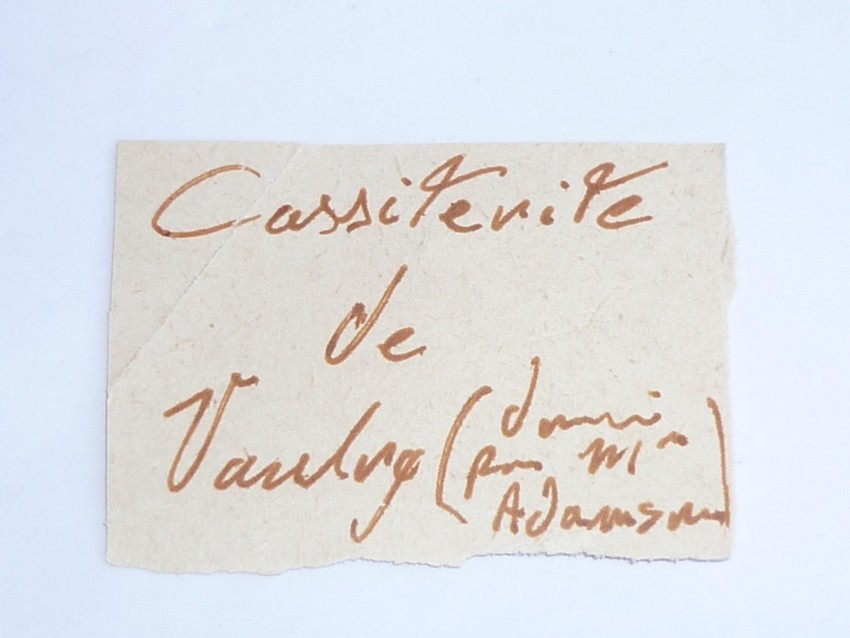 Cassiterite
de
Vaulry (donné
par Mr
Adamson)